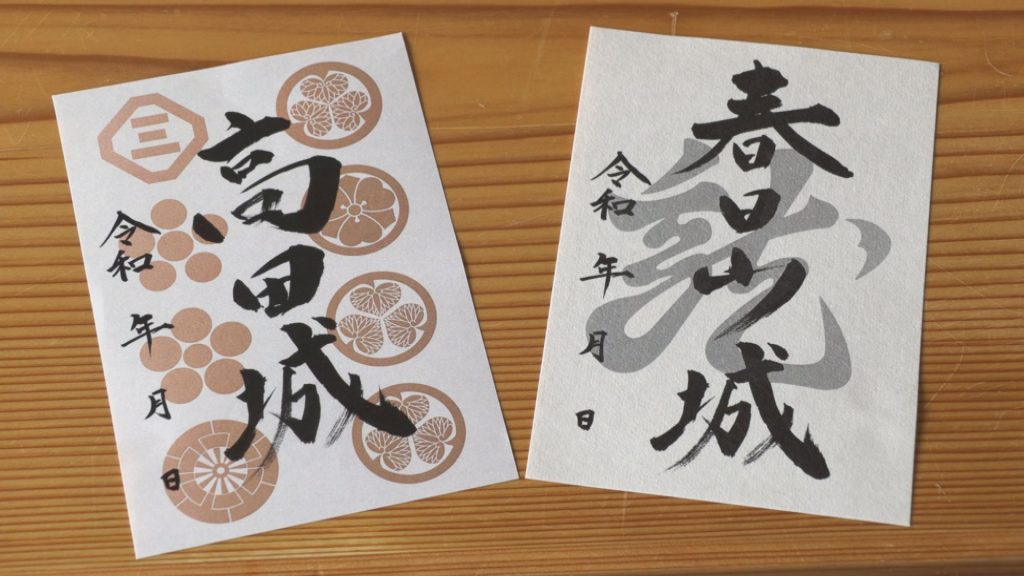 三
高田城
令和 年 月 日
春日山城
龍
令和 年 月 日